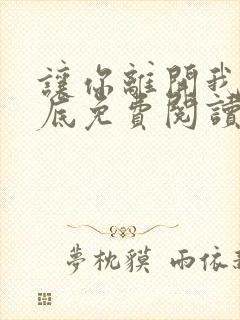 讓你離開我
底免費閱讀
夢枕貘 雨依